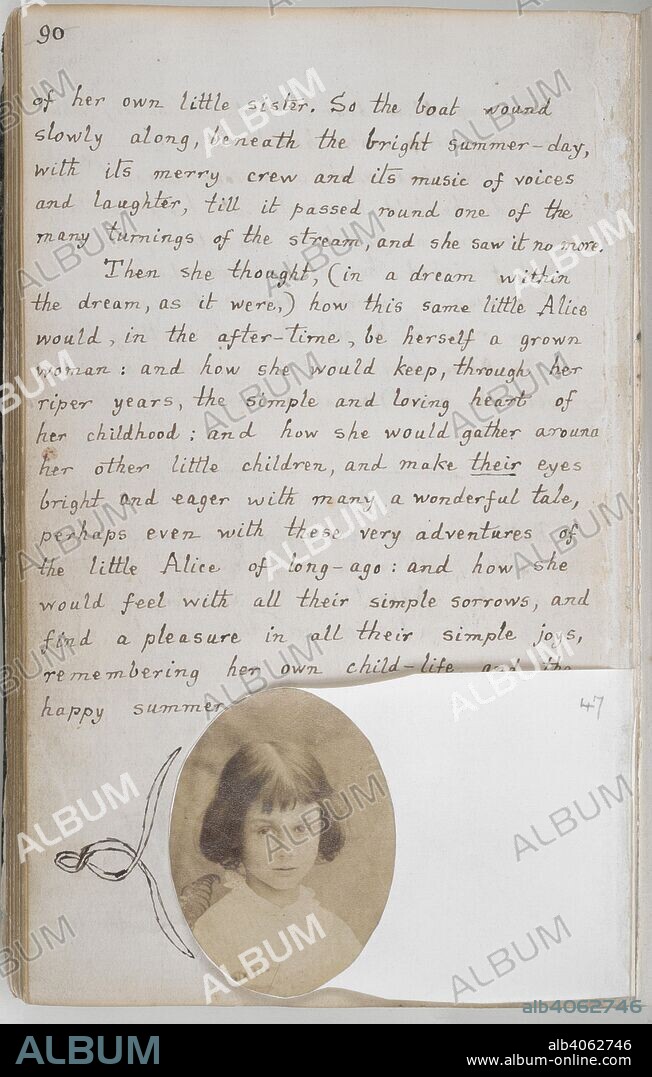 90
of her own little sister. So the boat wound
slowly along, beneath the bright summer-day,
with its merry crew and its music of voices
and laughter, till it passed round one of the
many turnings of the stream, and she saw it no more.
Then she thought, (in a dream within
the dream, as it were,) how this same little Alice
would, in the after-time, be herself a grown
woman: and how she would keep, through her
riper years, the simple and loving heart of
her childhood: and how she would gather around
her other little children, and make their eyes
bright and eager with many a wonderful tale,
perhaps even with these very adventures of
the little Alice of long-ago: and how she
would feel with all their simple sorrows, and
find a pleasure in all their simple joys,
remembering her own child-life and the
happy summer
47
ALBUM
alb4062746
ALBUM
alb4062746
www.album-online.com